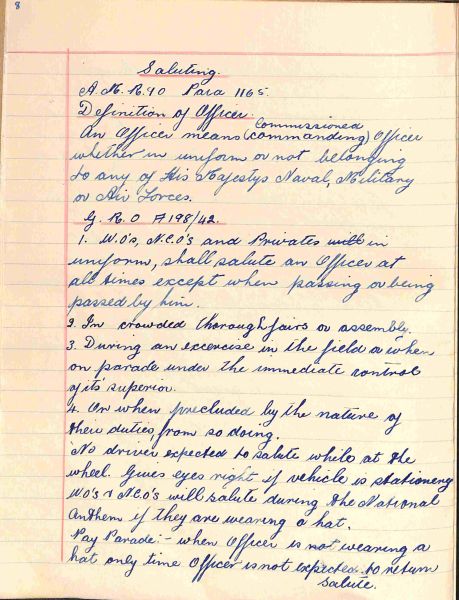 8
Saluting.
A.M.R.40 Para 1165.
Definition of Officer.
Commissioned
An Officer means (commanding) Officer
whether in uniform or not belonging
to any of His Majestys Naval, Military
or Air Forces.
G.R.O A198/42.
1. W.O's, N.C.O's and Privates in
uniform, shall salute an Officer at
all times except when passing or being
passed by him.
2. In crowded thoroughfairs or assembly.
3. During an excercise in the field or when
on parade under the immediate control
of its superior.
4. Or when precluded by the nature of
their duties, from so doing.
No driver expected to salute while at the
wheel. Gives eyes right if vehicle is stationery
WO's & NCO's will salute during the National
Anthem if they are wearing a hat.
Pay Parade:- when Officer is not wearing a
hat only time Officer is not expected to return
Salute.